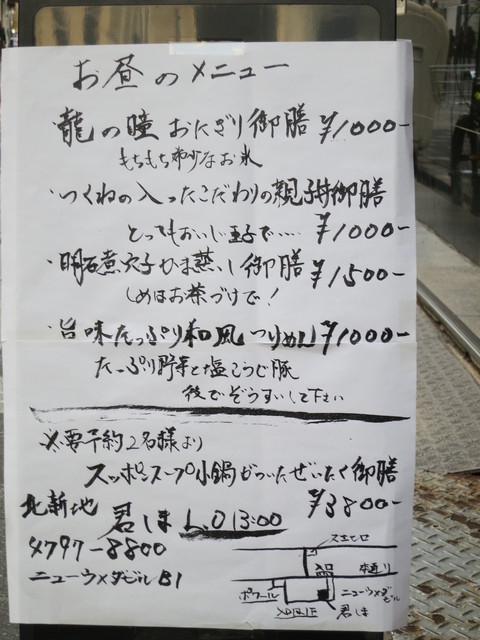 お昼のメニュー
・龍の瞳 おにぎり御膳 ¥1000-
もちもち希少なお米
・つくねの入ったこだわりの親子丼御膳
とってもおいしい玉子で…… ¥1000-
・明石煮穴子かま蒸し御膳 ¥1500-
しめはお茶づけで!
・旨味たっぷり和風 つけめん ¥1000-
たっぷり野菜と塩こうじ豚
後でぞうすいして下さい
※要予約2名様より
スッポンスープ小鍋がついたぜいたく御膳
¥3800-
北新地 君しま L.O 13:00
4797-8800
ニューウメダビル B1
本通り
入口
ニューウメダビル
君しま